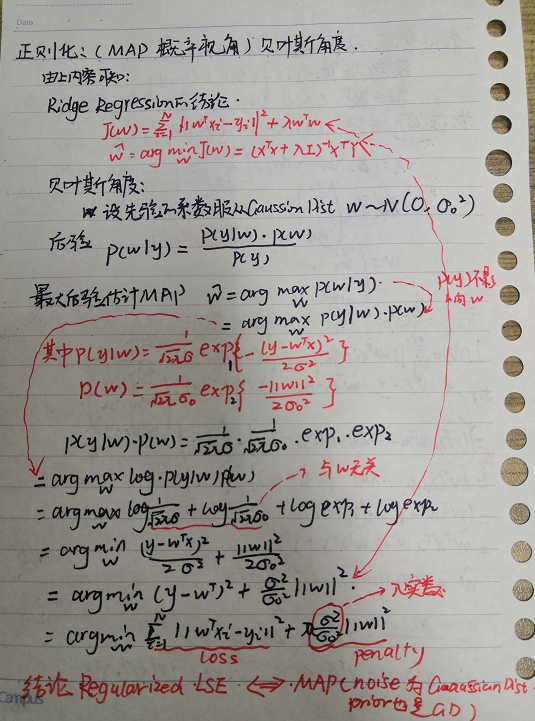 Date
正则化:(MAP 概率视角)贝叶斯角度.
由上内容可知:
Ridge Regression的结论.
J(w) = Σ_{i=1}^{N} ||w^T x_i - y_i||² + λw^T w
ŵ = arg min_w J(w) = (X^T X + λI)^{-1} X^T Y
贝叶斯角度:
设先验的系数服从Gaussian Dist w ~ N(0, σ₀²)
后验 p(w|y) = p(y|w)·p(w) / p(y)
最大后验估计MAP ŵ = arg max_w p(w|y).
= arg max_w p(y|w)·p(w).
p(y)不影
响w
其中p(y|w) = 1/(√2π σ) exp₁{-(y-w^T x)² / 2σ²}
p(w) = 1/(√2π σ₀) exp₂{-||w||² / 2σ₀²}
p(y|w)·p(w) = 1/(√2π σ) · 1/(√2π σ₀) · exp₁·exp₂
= arg max_w log·p(y|w)p(w)
与w无关
= arg max_w log 1/(√2π σ) + log 1/(√2π σ₀) + log exp₁ + log exp₂
= arg min_w (y-w^T x)² / 2σ² + ||w||² / 2σ₀²
= arg min_w (y-w^T)² + σ²/σ₀² ||w||².
λ实数
= arg min_w Σ_{i=1}^{N} ||w^T x_i - y_i||² + σ²/σ₀² ||w||²
Loss penalty
结论 Regularized LSE ⟺ MAP(noise为Gaussian Dist.
prior也是GD)
Campus